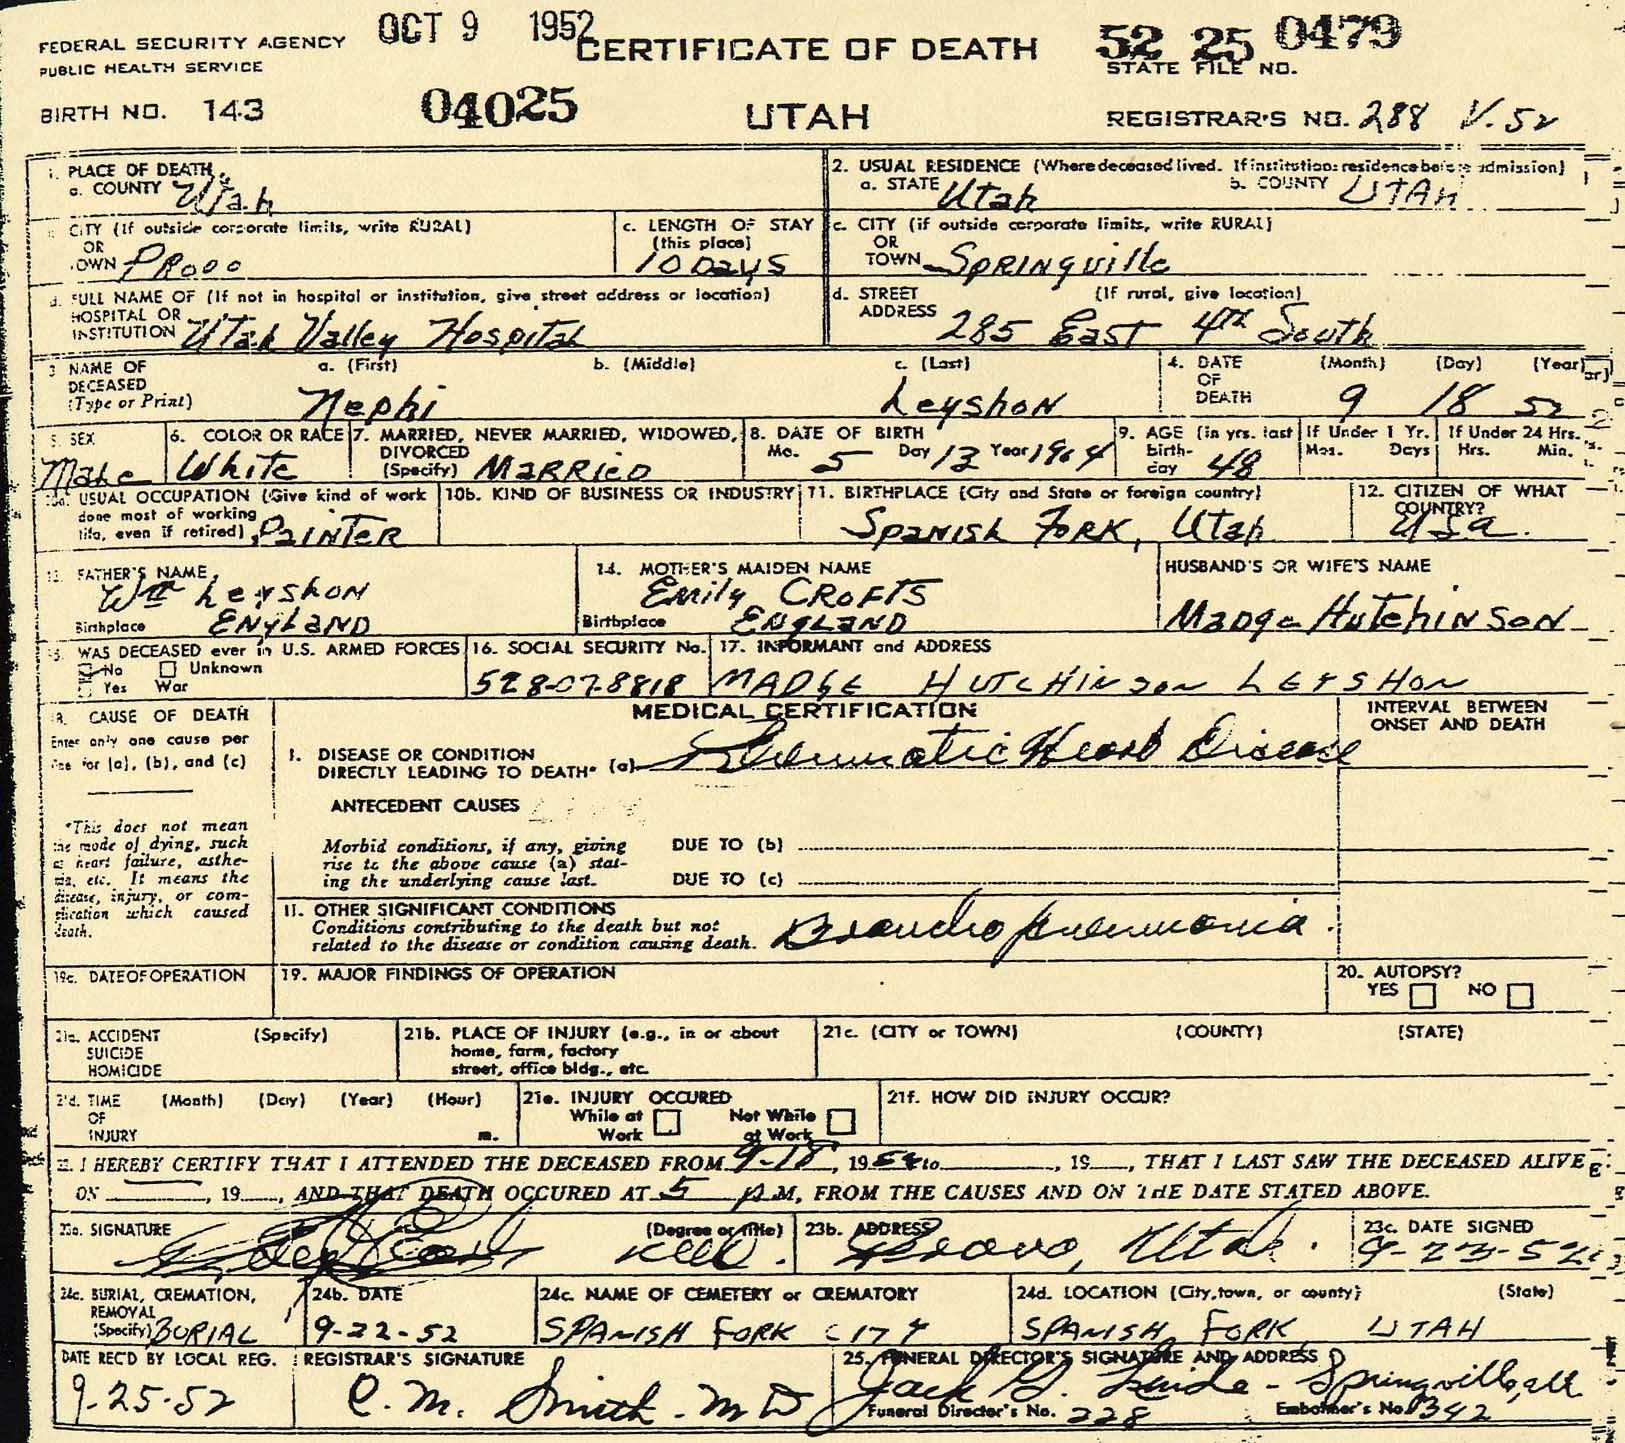 OCT 9 1952
FEDERAL SECURITY AGENCY
PUBLIC HEALTH SERVICE
CERTIFICATE OF DEATH
52 25 0479
STATE FILE NO.
BIRTH NO. 143
04025
UTAH
REGISTRAR'S NO. 288 V.52
1. PLACE OF DEATH
a. COUNTY Utah
2. USUAL RESIDENCE (Where deceased lived. If institution: residence before admission)
a. STATE Utah b. COUNTY UTAH
CITY (If outside corporate limits, write RURAL)
OR
TOWN Provo
c. LENGTH OF STAY
(this place)
10 Days
c. CITY (if outside corporate limits, write RURAL)
OR
TOWN Springville
d. FULL NAME OF (If not in hospital or institution, give street address or location)
HOSPITAL OR
INSTITUTION Utah Valley Hospital
d. STREET (If rural, give location)
ADDRESS 285 East 4th South
3. NAME OF
DECEASED
(Type or Print)
a. (First) b. (Middle) c. (Last)
Nephi Leyshon
4. DATE
OF
DEATH
(Month) (Day) (Year)
9 18 52
5. SEX
Male
6. COLOR OR RACE
White
7. MARRIED, NEVER MARRIED, WIDOWED,
DIVORCED
(Specify) MARRIED
8. DATE OF BIRTH
Mo. 5 Day 13 Year 1904
9. AGE (In yrs. last
birth-
day 48
If Under 1 Yr.
Mos. Days
If Under 24 Hrs.
Hrs. Min.
10a. USUAL OCCUPATION (Give kind of work
done most of working
life, even if retired) PAINTER
10b. KIND OF BUSINESS OR INDUSTRY
11. BIRTHPLACE (City and State or foreign country)
Spanish Fork, Utah
12. CITIZEN OF WHAT
COUNTRY?
USA.
13. FATHER'S NAME
Wm Leyshon
Birthplace ENGLAND
14. MOTHER'S MAIDEN NAME
Emily CROFTS
Birthplace ENGLAND
HUSBAND'S OR WIFE'S NAME
Madge Hutchinson
15. WAS DECEASED ever in U.S. ARMED FORCES
No Unknown
Yes War
16. SOCIAL SECURITY No.
528-07-8818
17. INFORMANT and ADDRESS
MADGE HUTCHINSON LEYSHON
18. CAUSE OF DEATH
Enter only one cause per
line for (a), (b), and (c)
*This does not mean
the mode of dying, such
as heart failure, asthe-
nia, etc. It means the
disease, injury, or com-
plication which caused
death.
MEDICAL CERTIFICATION
INTERVAL BETWEEN
ONSET AND DEATH
I. DISEASE OR CONDITION
DIRECTLY LEADING TO DEATH* (a) Rheumatic Heart Disease
ANTECEDENT CAUSES
Morbid conditions, if any, giving
rise to the above cause (a) stat-
ing the underlying cause last.
DUE TO (b)
DUE TO (c)
11. OTHER SIGNIFICANT CONDITIONS
Conditions contributing to the death but not
related to the disease or condition causing death.
Broncho pneumonia.
19c. DATE OF OPERATION
19. MAJOR FINDINGS OF OPERATION
20. AUTOPSY?
YES NO
21a. ACCIDENT (Specify)
SUICIDE
HOMICIDE
21b. PLACE OF INJURY (e.g., in or about
home, farm, factory
street, office bldg., etc.
21c. (CITY or TOWN) (COUNTY) (STATE)
21d. TIME (Month) (Day) (Year) (Hour)
OF
INJURY m.
21e. INJURY OCCURED
While at Work
Not While at Work
21f. HOW DID INJURY OCCUR?
I HEREBY CERTIFY THAT I ATTENDED THE DECEASED FROM 9-18, 1952 to , 19 , THAT I LAST SAW THE DECEASED ALIVE
ON , 19 , AND THAT DEATH OCCURED AT 5 P M, FROM THE CAUSES AND ON THE DATE STATED ABOVE.
23a. SIGNATURE (Degree or title)
23b. ADDRESS
Provo, Utah.
23c. DATE SIGNED
9-23-52
24c. BURIAL, CREMATION,
REMOVAL
(Specify) BURIAL
24b. DATE
9-22-52
24c. NAME OF CEMETERY or CREMATORY
SPANISH FORK CITY
24d. LOCATION (City, town, or county) (State)
SPANISH FORK UTAH
DATE REC'D BY LOCAL REG.
9-25-52
REGISTRAR'S SIGNATURE
C. M. Smith MD
25. FUNERAL DIRECTOR'S SIGNATURE AND ADDRESS
Jack G. - Springville,
Funeral Director's No. 228 Embalmer's No. 342